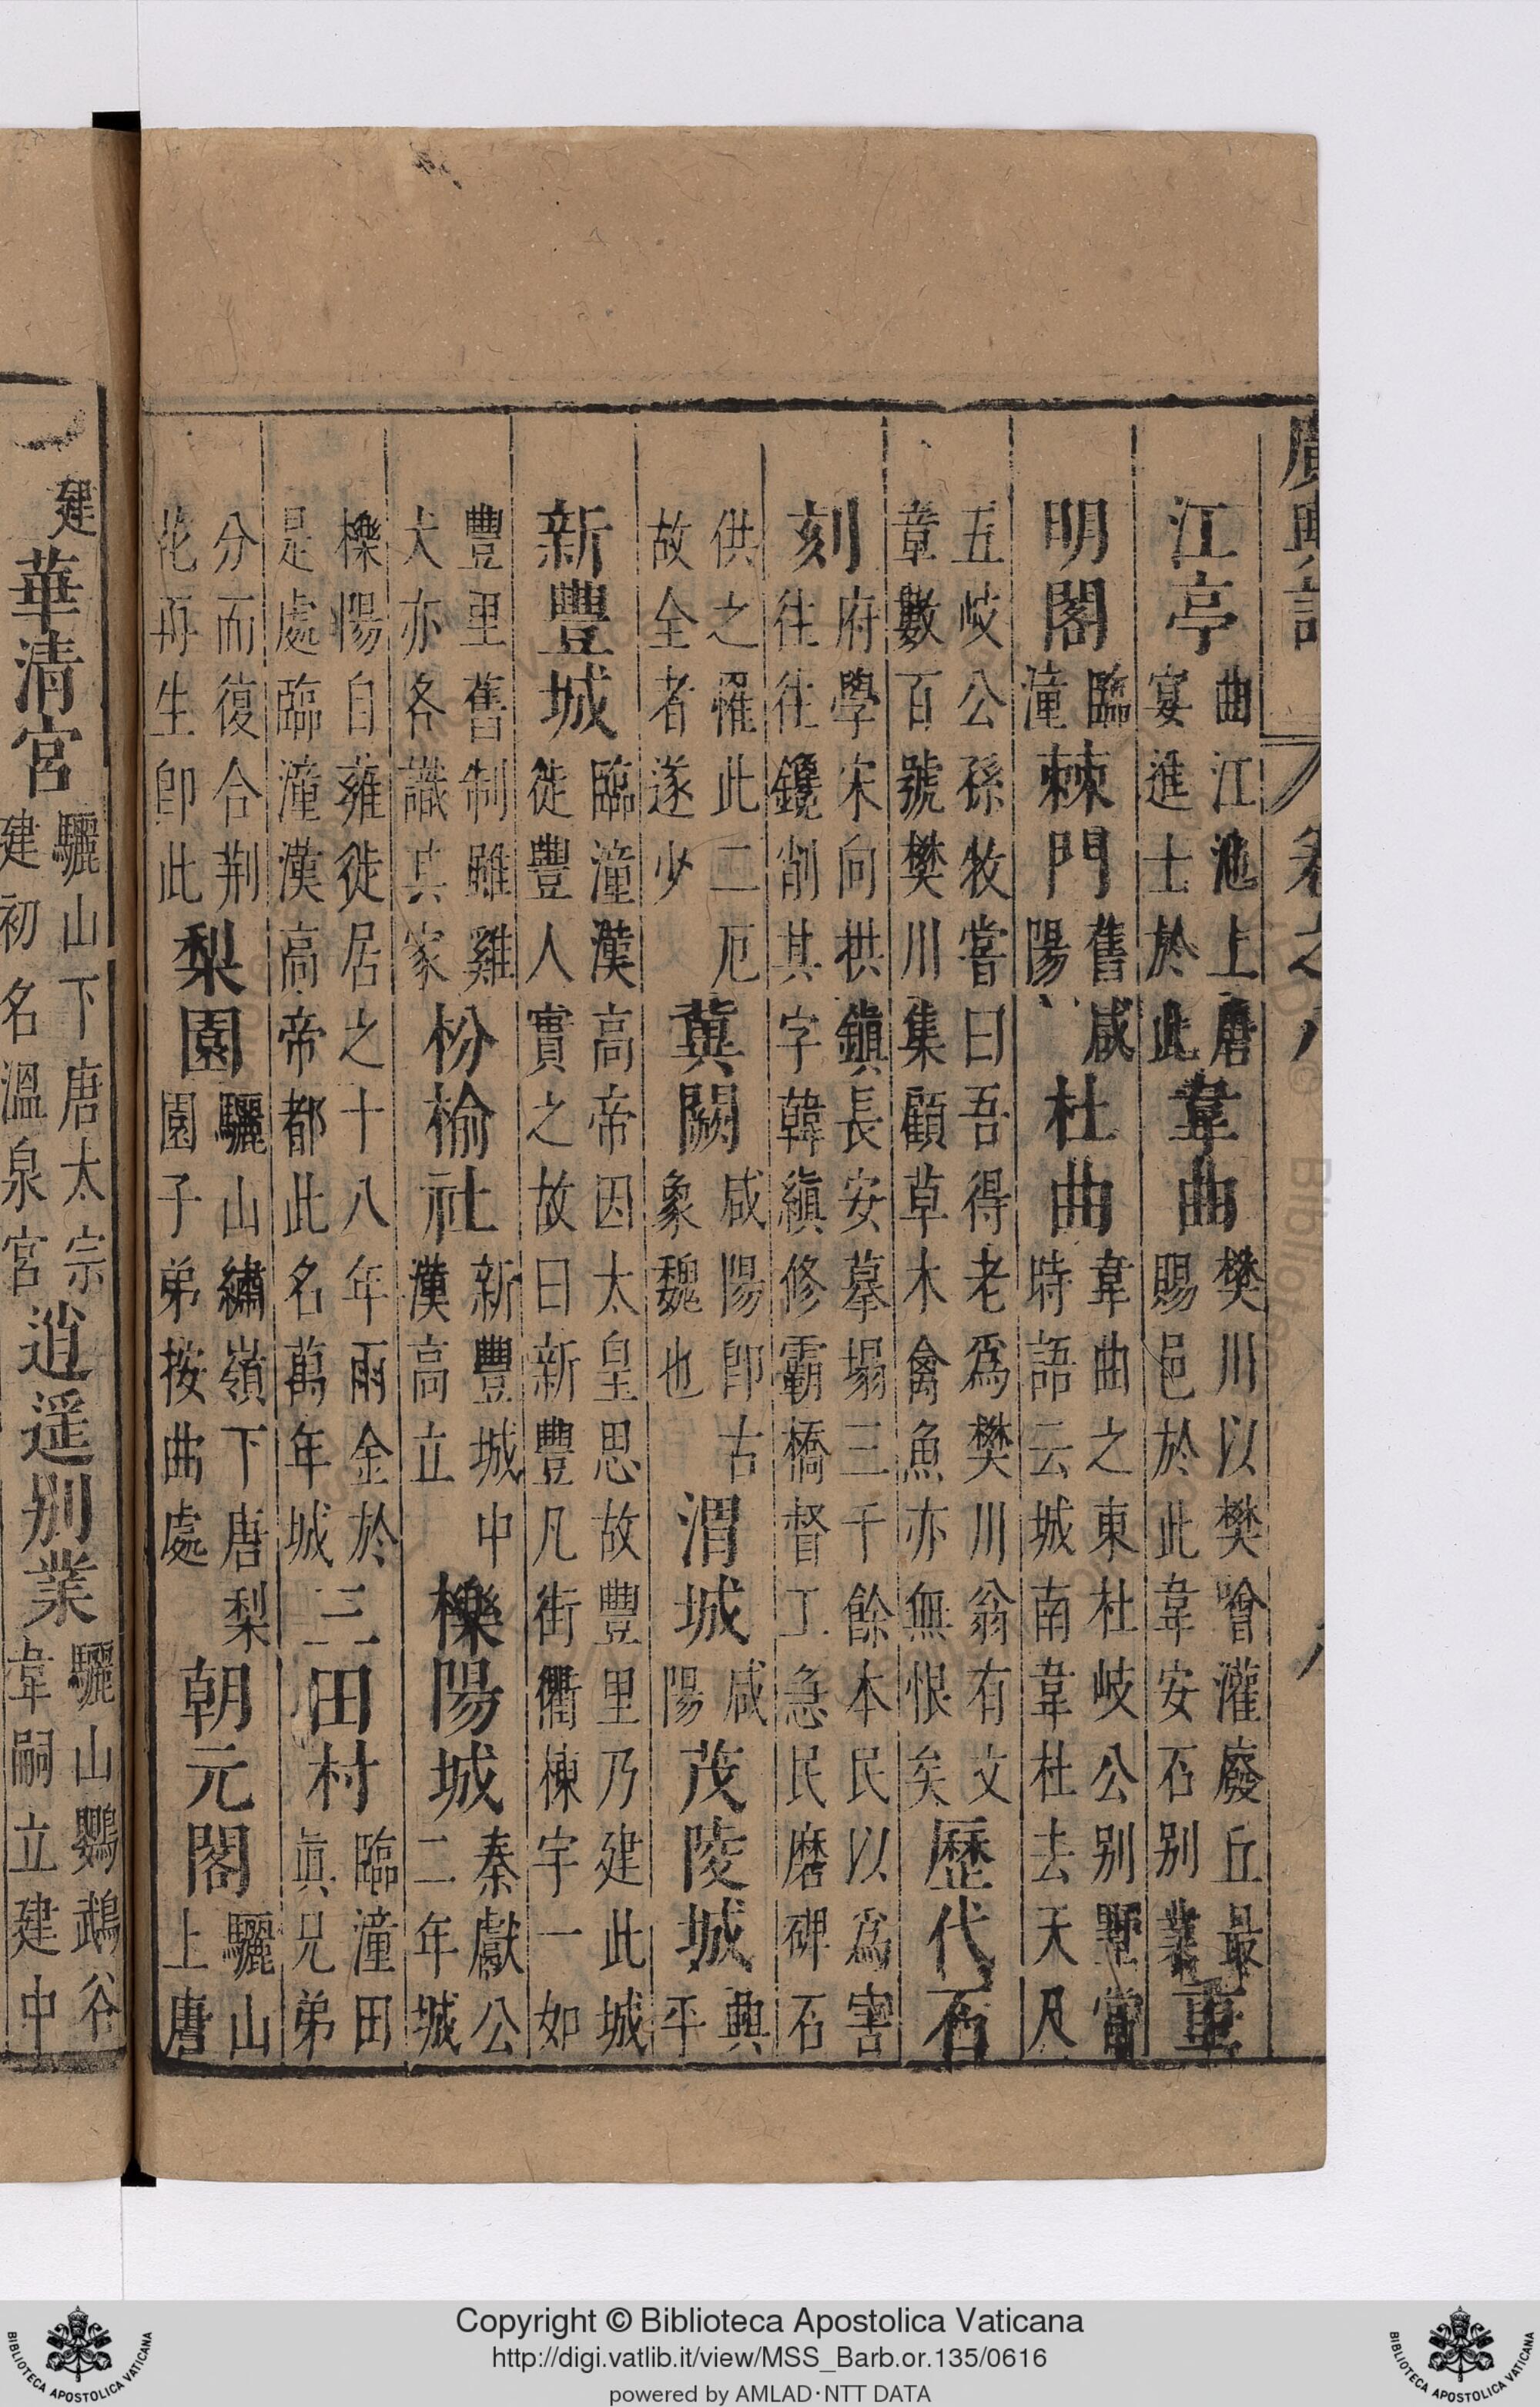 廣輿記 卷之八
江亭 曲江池上唐宴進士於此 韋曲 樊川以樊噲灌廢丘最賜邑於此韋安石别業 重
明閣 臨潼 棘門 舊咸陽 杜曲 韋曲之東杜岐公别墅當時語云城南韋杜去天尺
五岐公孫牧嘗曰吾得老爲樊川翁有文章數百號樊川集顧草木禽魚亦無恨矣 歷代石
刻 府學宋向拱鎮長安摹塌三千餘本民以爲害往往鑱削其字韓縝修霸橋督工急民磨碑石
供之罹此二厄故全者遂少 冀闕 咸陽卽古象魏也 渭城 咸陽 茂陵城 興平
新豐城 臨潼漢高帝因太皇思故豐里乃建此城徙豐人實之故曰新豐凡街衢棟宇一如
豐里舊制雖雞犬亦各識其家 枌榆社 新豐城中漢高立 櫟陽城 秦獻公二年城
櫟陽自雍徙居之十八年雨金於是處臨潼漢高帝都此名萬年城 三田村 臨潼田眞兄弟
分而復合荆花再生卽此 梨園 驪山繡嶺下唐梨園子弟按曲處 朝元閣 驪山上唐
建 華清宮 驪山下唐太宗建初名溫泉宮 逍遥别業 驪山鸚鵡谷韋嗣立建中
Copyright © Biblioteca Apostolica Vaticana
http://digi.vatlib.it/view/MSS_Barb.or.135/0616
powered by AMLAD·NTT DATA
BIBLIOTECA APOSTOLICA VATICANA
BIBLIOTECA APOSTOLICA VATICANA